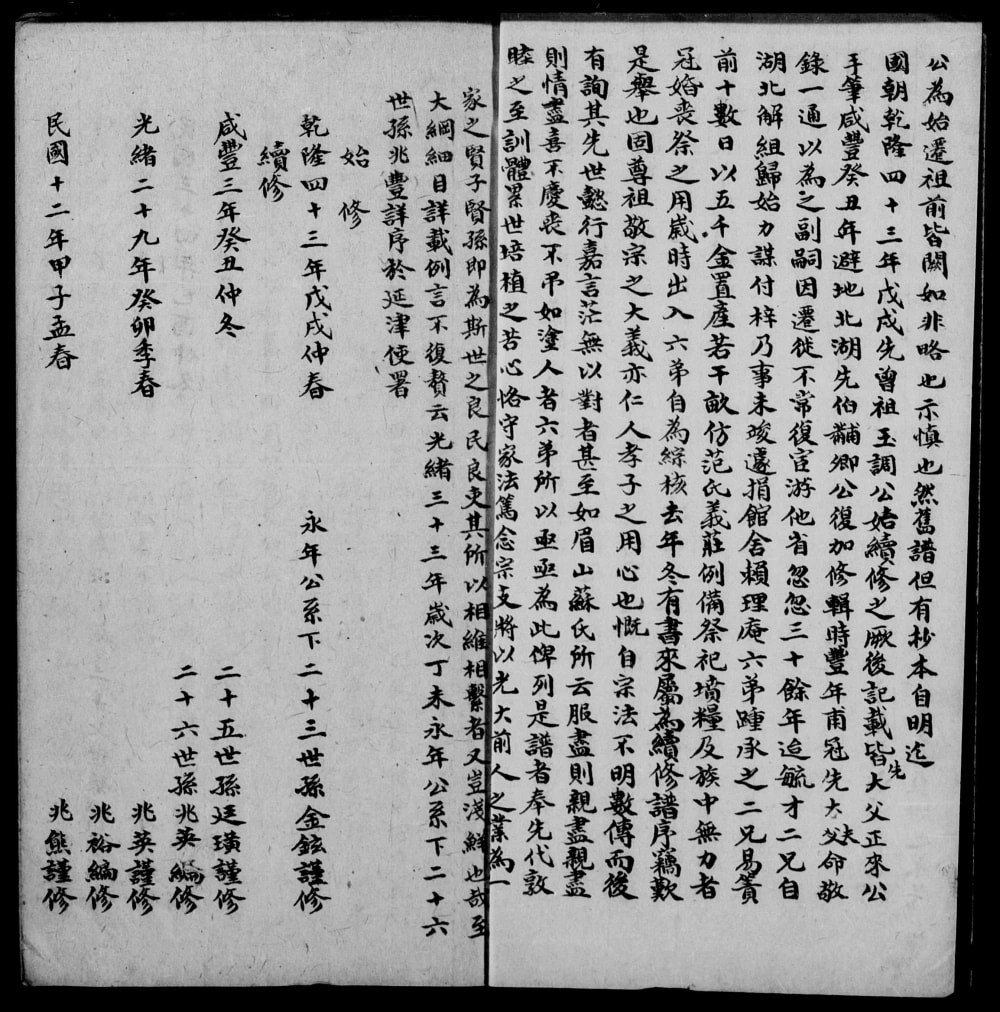 公為始遷祖前皆闕如非略也示慎也然舊譜但有抄本自明迄
國朝乾隆四十三年戊戌先曾祖玉調公始續修之厥後記載皆先大父正來公
手筆咸豐癸丑年避地北湖先伯黼卿公復加修輯時豐年甫冠先大夫父命敬
錄一通以為之副嗣因遷徙不常復宦游他省忽忽三十餘年迨毓才二兄自
湖北解組歸始力謀付梓乃事未竣遽捐館舍賴理庵六弟踵承之二兄易簀
前十數日以五千金置產若干畝仿范氏義莊例備祭祀墳糧及族中無力者
冠婚喪祭之用歲時出入六弟自為綜核去年冬有書來屬為續修譜序竊歎
是舉也固尊祖敬宗之大義亦仁人孝子之用心也慨自宗法不明數傳而後
有詢其先世懿行嘉言茫無以對者甚至如眉山蘇氏所云服盡則親盡親盡
則情盡喜不慶喪不弔如塗人者六弟所以亟亟為此俾列是譜者奉先代敦
睦之至訓體累世培植之苦心恪守家法篤念宗支將以光大前人之業為一
家之賢子賢孫即為斯世之良民良吏其所以相維相繫者又豈淺鮮也哉至
大綱細目詳載例言不復贅云光緒三十三年歲次丁未永年公系下二十六
世孫兆豐詳序於延津使署
始修
乾隆四十三年戊戌仲春 永年公系下二十三世孫金鉉謹修
續修
咸豐三年癸丑仲冬 二十五世孫廷璜謹修
二十六世孫兆英編修
光緒二十九年癸卯季春 兆英謹修
兆裕編修
民國十二年甲子孟春 兆熊謹修